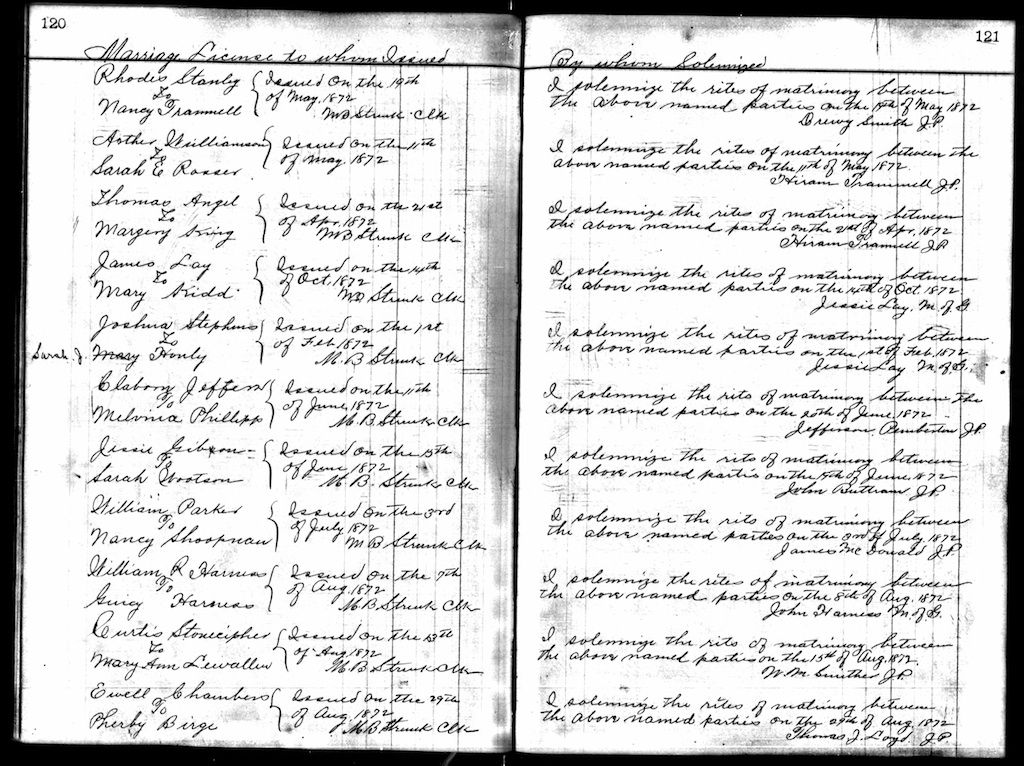 120
Marriage License to whom Issued
Rhodis Stanly
To
Nancy Trammell
Issued On the 19th
of May, 1872
M B Strunk Clk
Arther Williamson
To
Sarah E Rosser
Issued on the 11th
of May 1872
Thomas Angel
To
Margery King
Issued on the 21st
of Apr, 1872
M B Strunk Clk
James Lay
To
Mary Kidd
Issued on the 14th
of Oct, 1872
M B Strunk Clk
Joshua Stephens
To
Sarah J. Mary Honly
Issued on the 1st
of Feb 1872
M. B Strunk Clk
Clabory Jeffers
To
Melvina Phillipp
Issued on the 11th
of June, 1872
M. B Strunk Clk
Jessie Gibson
Sarah Wootson
Issued on the 13th
of June 1872
M. B Strunk Clk
William Parker
To
Nancy Shoopman
Issued On the 3rd
of July 1872
M B Strunk Clk
William R Harness
To
Harness
Issued On the 7th
of Aug. 1872
M B Strunk Clk
Curtis Stonecipher
To
Mary Ann Lewallen
Issued on the 13th
of Aug 1872
M B Strunk Clk
Ewell Chambers
To
Pherby Birge
Issued on the 29th
of Aug 1872
M B Strunk Clk
121
By whom Solemnized
I solemnize the rites of matrimony between
the above named parties on the 19th of May 1872
Drewy Smith J.P.
I solemnize the rites of matrimony between the
above named parties on the 11th of May 1872.
Hiram Trammell J.P.
I solemnize the rites of matrimony between
the above named parties on the 21st of Apr, 1872
Hiram Tramell J.P.
I solemnize the rites of matrimony between
the above named parties on the 14th of Oct. 1872
Jessie Lay, M. of G.
I solemnize the rites of matrimony between
the above named parties on the 1st of Feb, 1872
Jessie Lay M. of G.
I solemnize the rits of matrimony between the
above named parties on the 20th of June, 1872
Jefferson Pemberton J.P.
I solemnize the rits of matrimony between
the above named parties on the of June, 1872
John Buttram J.P.
I solemnize the rits of matrimony between
the above named parties on the 3rd of July 1872
James McDonald J.P.
I solemnize the rites of matrimony between
the above named parties on the 8th of Aug. 1872
John Harness M. of G.
I solemnize the rits of matrimony between
the above named parties on the 15th of Aug. 1872,
W. M. Smither J.P.
I solemnize the rites of matrimony between
the above named parties on the 29th of Aug 1872
Thomas J. Loyd J.P.